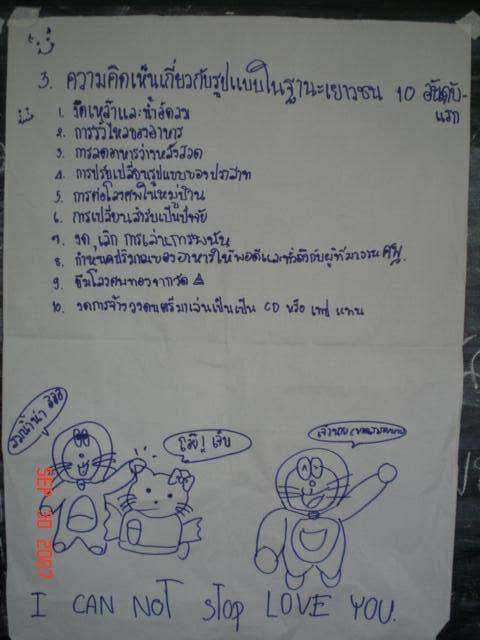 3. ความคิดเห็นเกี่ยวกับรูปแบบในฐานะเยาวชน 10 อันดับ-
แรก
1. งดเหล้าและน้ำอัดลม
2. การรั่วไหลของอาหาร
3. การลดอาหารว่างหลังสวด
4. การปรับเปลี่ยนรูปแบบของปราสาท
5. การต่อโลงศพในหมู่บ้าน
6. การเปลี่ยนสำรับเป็นปัจจัย
7. งด, เลิก การเล่นการพนัน
8. กำหนดปริมาณของอาหารให้พอดีและทั่วถึงกับผู้ที่มางานศพ.
9. ยืมโลงศพทองจากวัด
10. งดการจ้างวงดนตรีมาเล่นเป็นเป็น CD หรือ เทป แทน
อุ๊ย! เจ็บ
SEP 30 2007
I CAN NOT stop LOVE YOU.